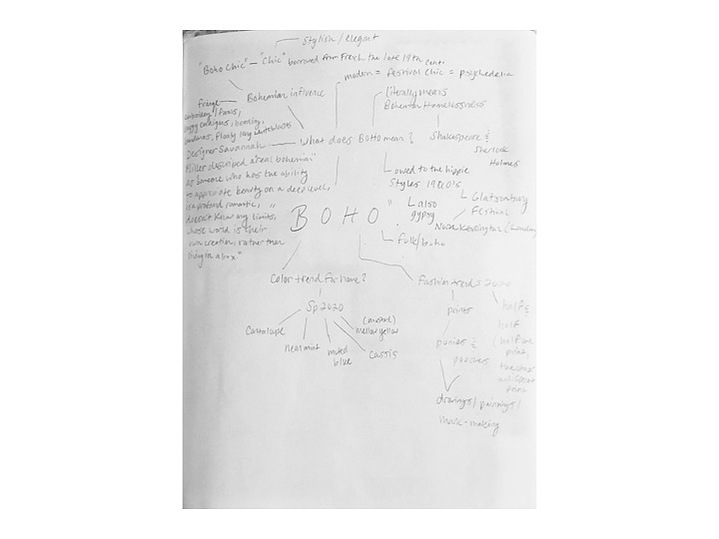 stylish / elegant
"Boho Chic" – "chic" borrowed from French the late 19th cent.
modern = festival chic = psychedelia
Bohemian influence
fringe
embroidery / Paris,
cardigans, beading,
bandanas, flowy
Designer Savannah
Miller described a "real bohemian"
as someone who has the ability
to appreciate beauty on a deep level,
is a profound romantic,
doesn't know any limits,
whose world is their
own creation, rather than
living in a box."
What does BOHO mean?
Literally means
Bohemian Homelessness
Shakespeare &
Sherlock
Holmes
owed to the hippie
styles
also
gypsy
Glastonbury
Festival
North Kensington (London)
"BOHO"
folk/boho
Color trend for home?
Sp 2020
Cantaloupe
neo mint
muted
blue
Cassis
(mustard)
mellow yellow
Fashion trends 2020
prints
ponies &
half &
half
(half one
print,
print
drawings / paintings /
mark-making